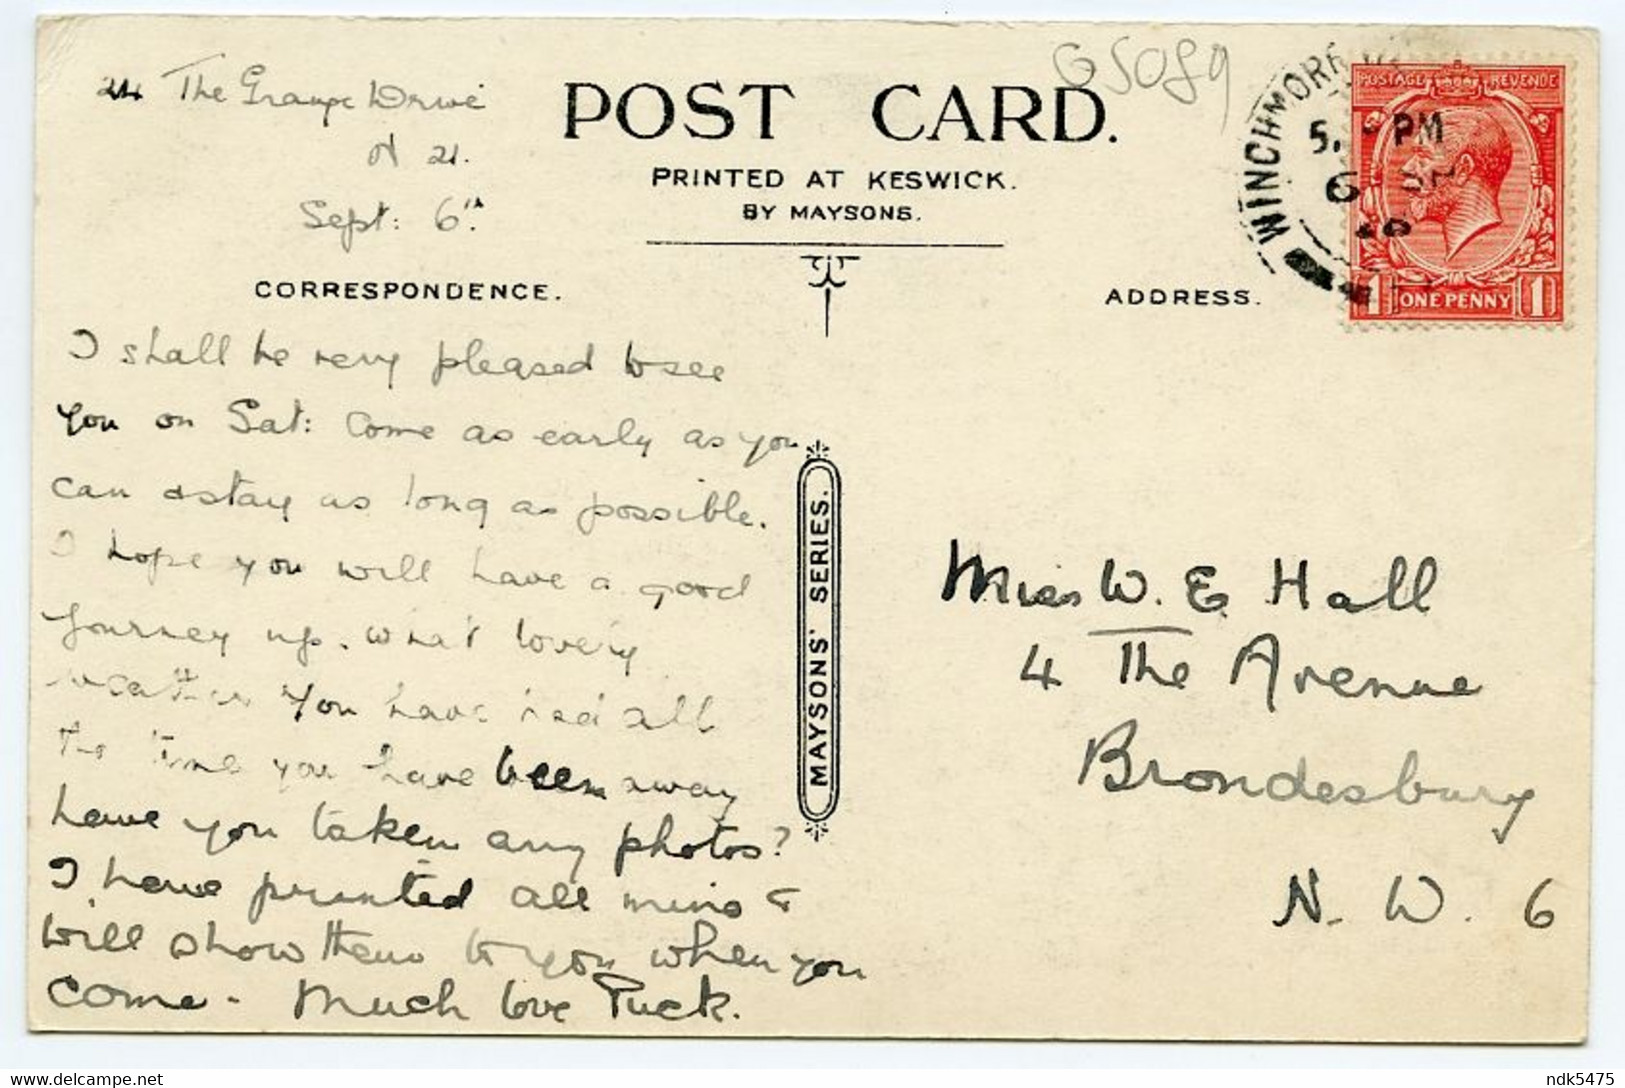 24 The Grange Drive
N 21.
Sept: 6th.
POST CARD.
PRINTED AT KESWICK.
BY MAYSONS.
G5089
WINCHMORE
5. PM
6 SP
POSTAGE REVENUE
1 ONE PENNY 1
CORRESPONDENCE.
ADDRESS.
I shall be very pleased to see
you on Sat: Come as early as you
can & stay as long as possible.
I hope you will have a good
journey up. What lovely
weather you have had all
the time you have been away
have you taken any photos?
I have printed all mine &
will show them to you when you
come - Much love Puck.
MAYSONS' SERIES.
Miss W. E. Hall
4 The Avenue
Brondesbury
N. W. 6
ndk5475